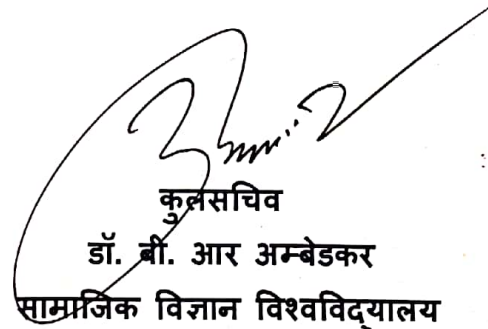 कुलसचिव
डॉ. बी. आर अम्बेडकर
सामाजिक विज्ञान विश्वविद्यालय